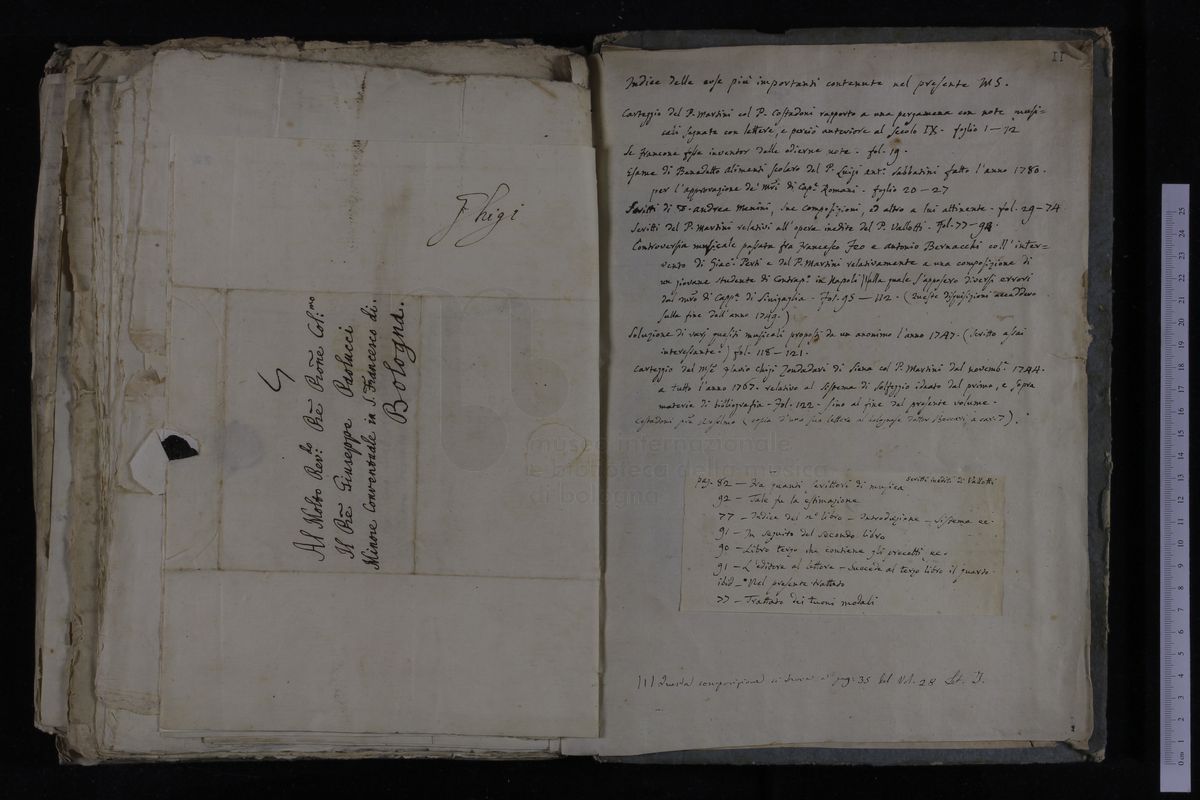 Chigi
4
Al Molto Rev:do Pre Prone Col:mo
Il Pre Giuseppe Paolucci
Minore Conventuale in S. Francesco di
Bologna.
II
Indice delle cose più importanti contenute nel presente MS.
Carteggio del P. Martini col P. Costadoni rapporto a una pergamena con note musi=
cali segnate con lettere, e perciò anteriore al secolo IX. foglio 1 — 12
Se Francone fosse inventor delle odierne note. fol. 19.
Esame di Benedetto Alimenti scolaro del P. Luigi Ant. Sabbatini fatto l'anno 1780.
per l'approvazione de' Mri di Cap. Romani. foglio 20 — 27
Scritti di D. Andrea Menini, sue composizioni, ed altro a lui attinente. fol. 29 — 74
Scritti del P. Martini relativi all'opera inedita del P. Vallotti. Fol. 77 — 94
Controversia musicale passata fra Francesco Feo e Antonio Bernacchi coll'inter=
vento di Giac. Perti e del P. Martini relativamente a una composizione di
un giovane studente di Contrap. in Napoli sulla quale s'apposero diversi errori
dal mro di Capp. di Sinigaglia. Fol. 95 — 112. (Queste disquisizioni accaddero
sulla fine dell'anno 1749.)
Soluzione di varj quesiti musicali proposti da un anonimo l'anno 1747. (Scritto assai
interessante.) fol. 118 — 121.
Carteggio del Mse Flavio Chigi Zondadari di Siena col P. Martini dal novemb. 1744.
a tutto l'anno 1767. relativo al sistema di solfeggio ideato dal primo, e sopra
materie di bibliografia. Fol. 122. sino al fine del presente volume.
Costadoni (copia d'una sua lettera al bolognese dottor Beccari a car. 7).
pag. 82 — Fra quanti scrittori di musica scritti inediti di Vallotti
92 — Tale fu la estimazione
77 — Indice del libro — Introduzione — Sistema ec.
91 — In seguito del secondo libro
90 — Libro terzo che contiene gli precetti ec.
91 — L'editore al lettore — Succede al terzo libro il quarto
ibid — Nel presente trattato
77 — Trattato dei tuoni modali
(1) Questa composizione si trova a pag. 35 del Vol. 28
museo internazionale
e biblioteca della musica
di bologna
0 cm 1 2 3 4 5 6 7 8 9 10 11 12 13 14 15 16 17 18 19 20 21 22 23 24 25